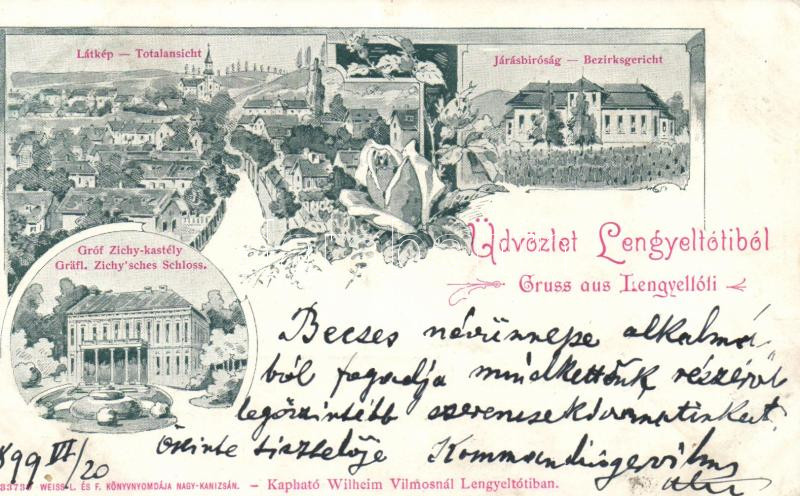 Látkép — Totalansicht
Járásbiróság — Bezirksgericht
Gróf Zichy-kastély
Gräfl. Zichy'sches Schloss.
Üdvözlet Lengyeltótiból
Gruss aus Lengyeltóti
Becses névünnepe alkalmá-
ból fogadja mindkettőnk részéről
legőszintébb szerencsekivánatinkat.
Őszinte tisztelője
899 VI/20
WEISS L. ÉS F. KÖNYVNYOMDÁJA NAGY-KANIZSÁN. — Kapható Wilheim Vilmosnál Lengyeltótiban.